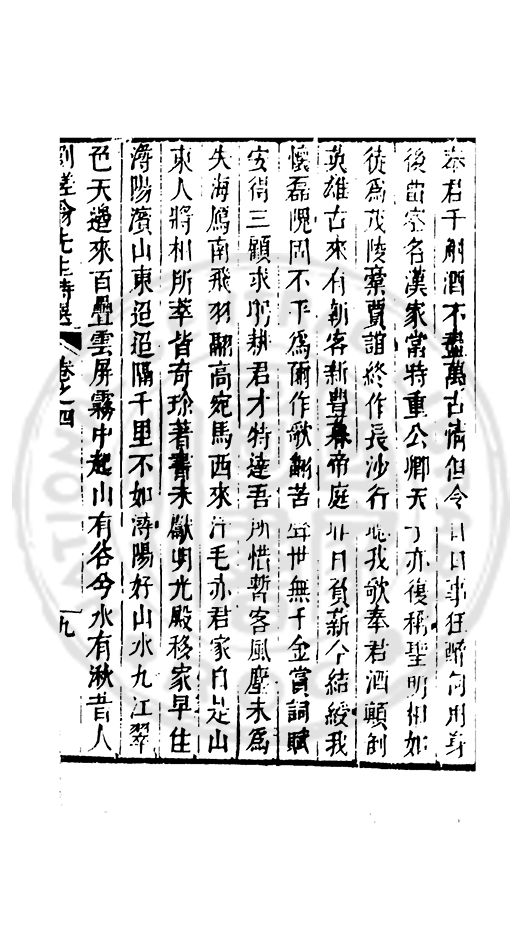 奉君千斛酒不盡萬古情但令日日事狂醉何用身
後留空名漢家當時重公卿天子亦復稱聖明相如
徒爲茂陵棄賈誼終作長沙行 我歌奉君酒願
英雄古來有新客新豐暮帝庭昨日負薪今結綬我
懷磊隗同不平爲爾作歌翻苦聲世無千金賞詞賦
安得三顧求耕君才特達吾所惜暫客風塵未爲
失海鴈南飛羽翮高宛馬西來汗毛赤君家自是山
東人將相所萃皆奇珍著書未獻明光殿移家早住
潯陽濱山東迢迢隔千里不如潯陽好山水九江翠
色天邊來百疊雲屏霧中起山有谷兮水有湫昔人
劉槎翁先生詩選 卷之四 九